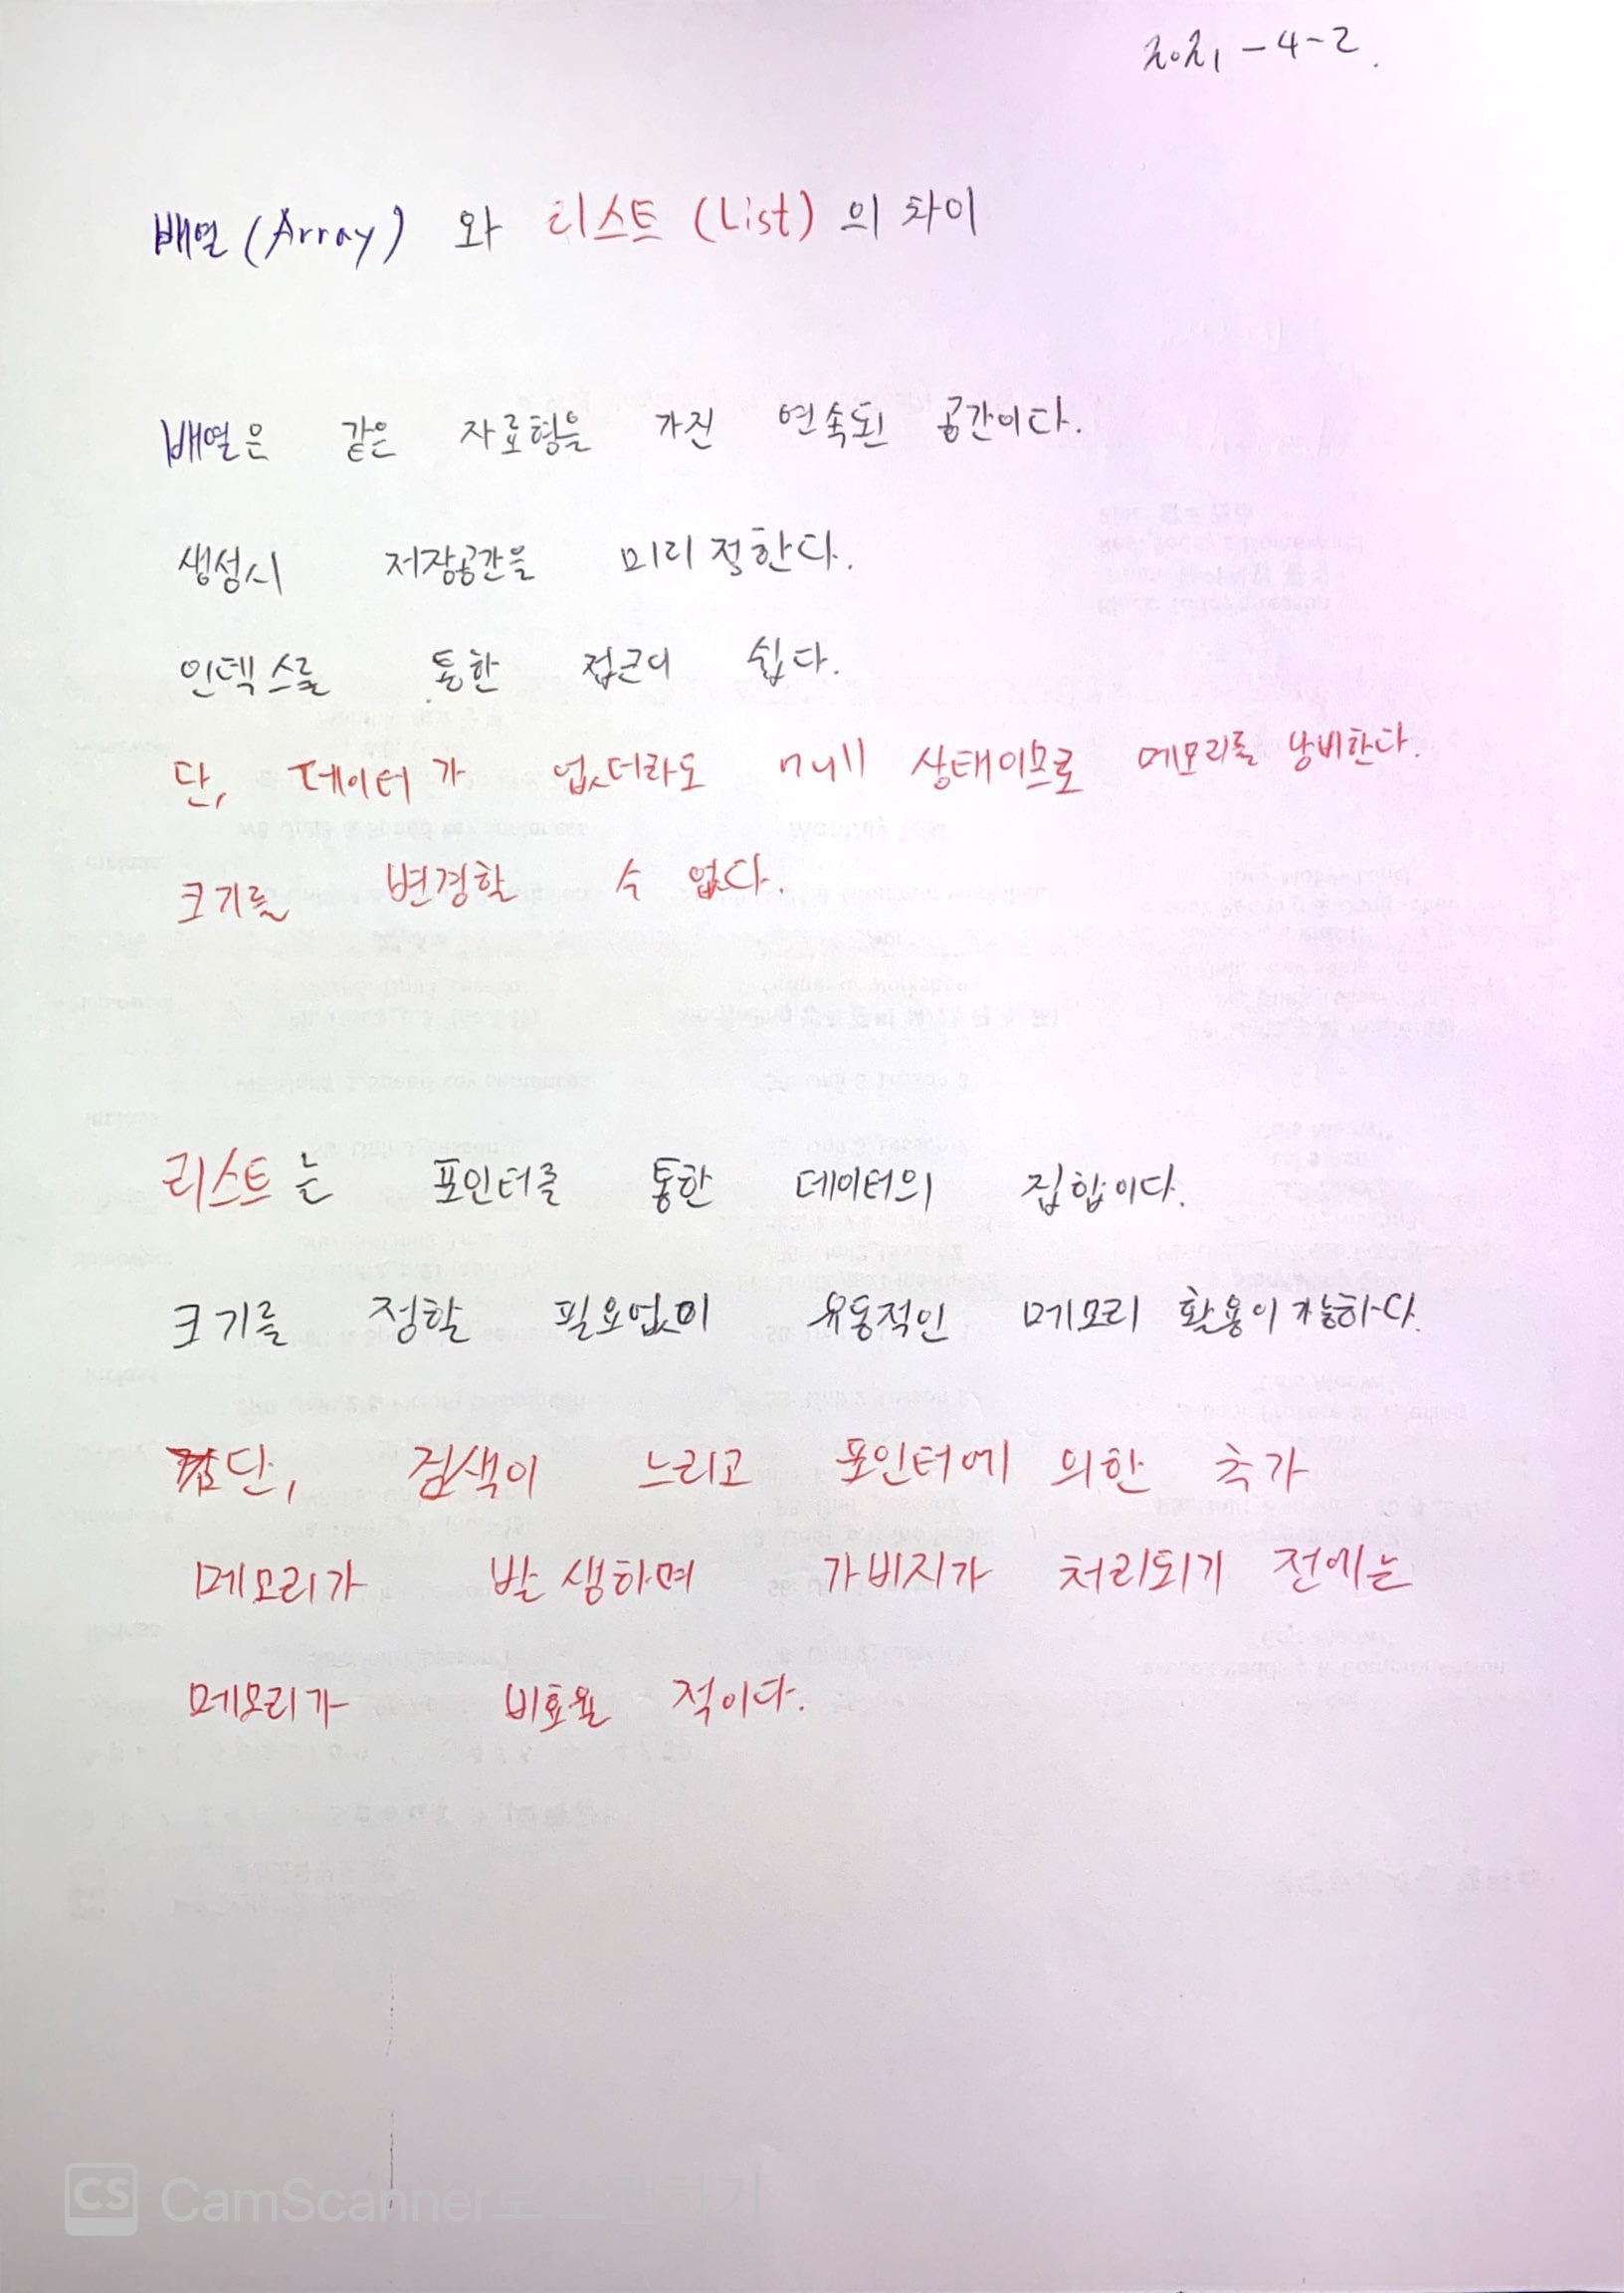 2021-4-2.
배열(Array) 와 리스트 (List) 의 차이
배열은 같은 자료형을 가진 연속된 공간이다.
생성시 저장공간을 미리 정한다.
인덱스를 통한 접근이 쉽다.
단, 데이터가 없더라도 null 상태이므로 메모리를 낭비한다.
크기를 변경할 수 없다.
리스트는 포인터를 통한 데이터의 집합이다.
크기를 정할 필요없이 유동적인 메모리 활용이 가능하다.
단, 검색이 느리고 포인터에 의한 추가
메모리가 발생하며 가비지가 처리되기 전에는
메모리가 비효율적이다.
CS CamScanner로 스캔하기